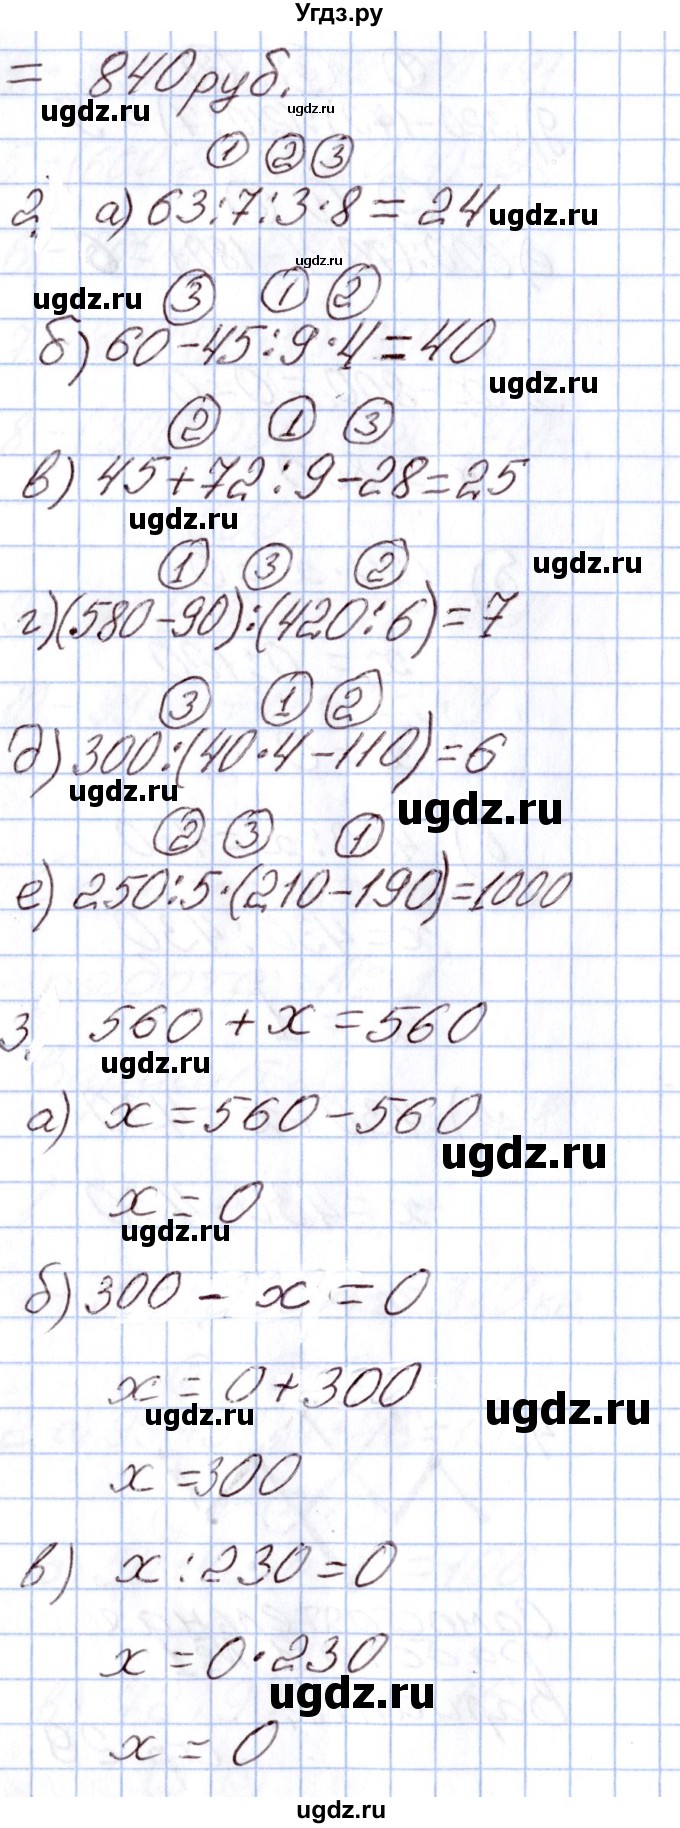 Угдз.ру
= 840 руб.
ugdz.ru ugdz.ru
① ② ③
2. а) 63:7:3·8=24
ugdz.ru
ugdz.ru
ugdz.ru
③ ① ②
б) 60-45:9·4=40
ugdz.ru
② ① ③
в) 45+72:9-28=25
ugdz.ru
ugdz.ru
① ③ ②
г) (580-90):(420:6)=7
③ ① ②
д) 300:(40·4-110)=6
ugdz.ru
ugdz.ru
② ③ ①
е) 250:5·(210-190)=1000
3. 560+x=560
ugdz.ru
а) x=560-560
ugdz.ru
x=0
ugdz.ru
б) 300-x=0
x=0+300
ugdz.ru ugdz.ru
x=300
в) x:230=0
x=0·230
ugdz.ru
x=0
ugdz.ru